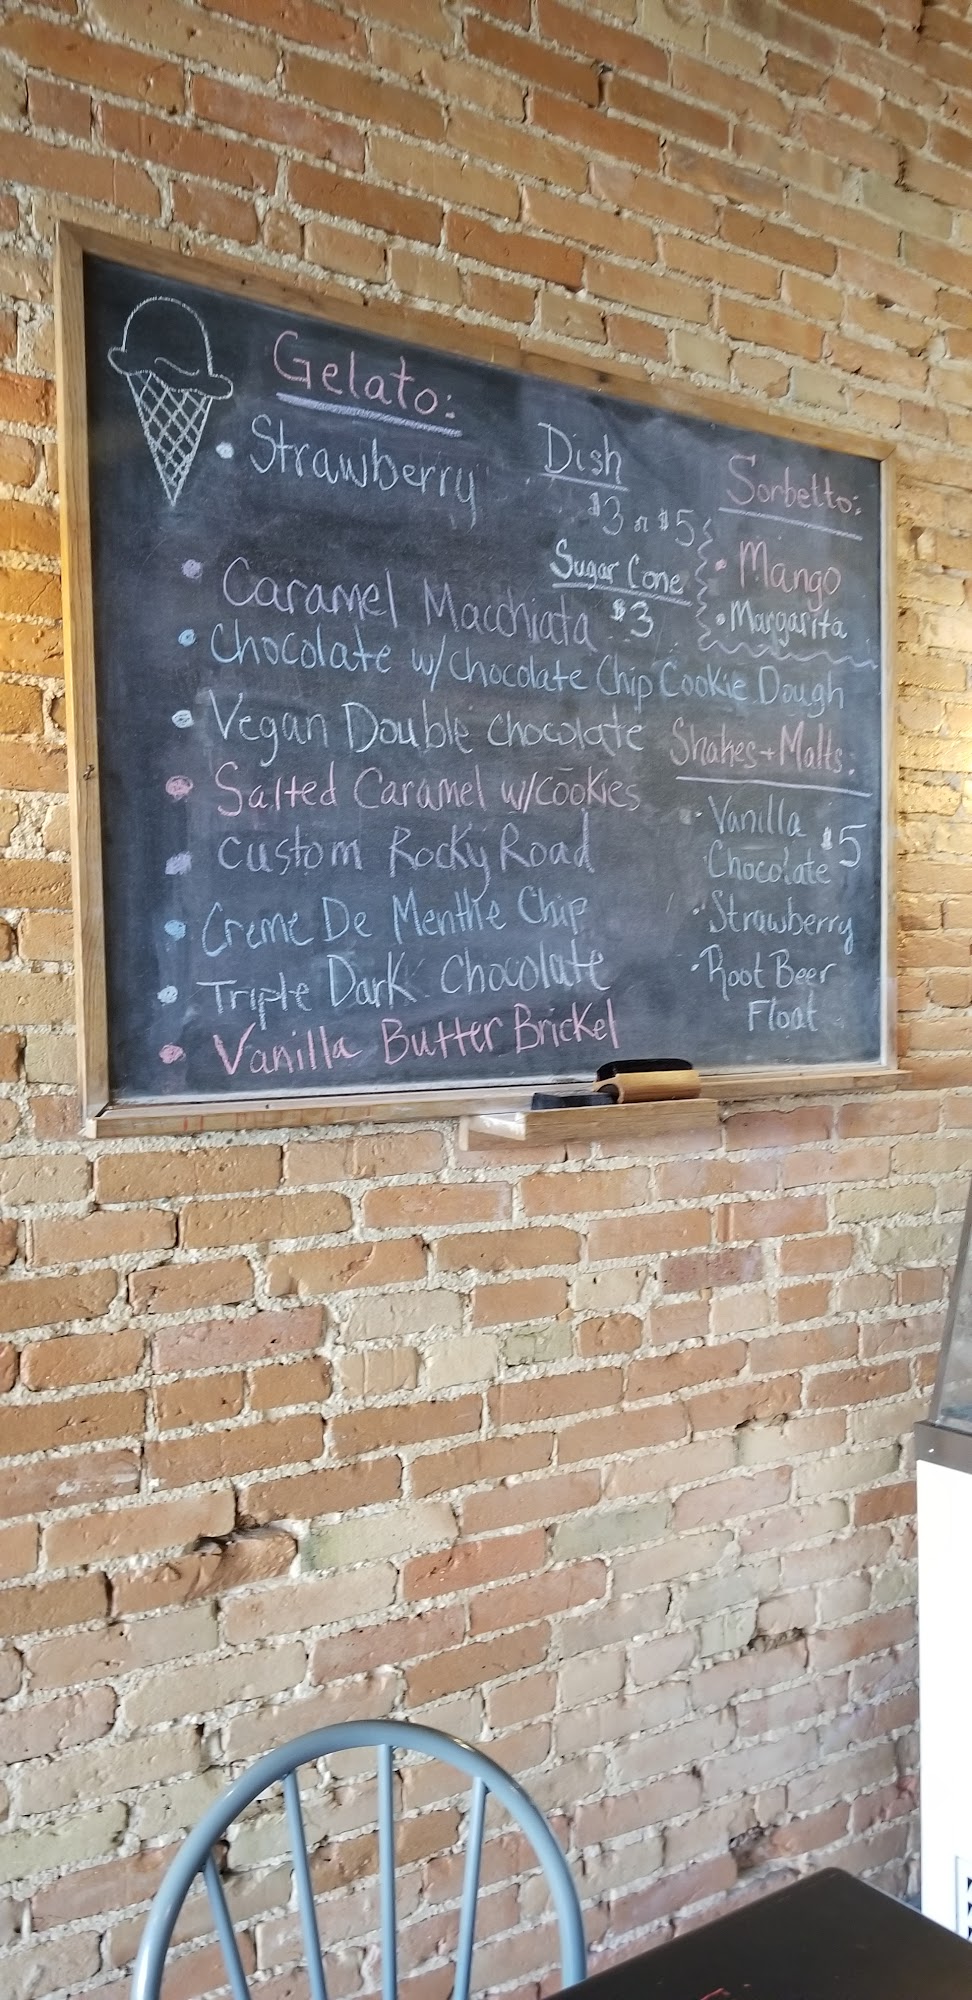 Gelato:
Strawberry
Caramel Macchiata
Chocolate w/chocolate Chip Cookie Dough
Vegan Double chocolate
Salted Caramel w/cookies
Custom Rocky Road
Creme De Menthe Chip
Triple Dark Chocolate
Vanilla Butter Brickel
Dish
$3 or $5
Sugar Cone
$3
Sorbetto:
Mango
Margarita
Shakes + Malts:
Vanilla
Chocolate $5
Strawberry
Root Beer
Float